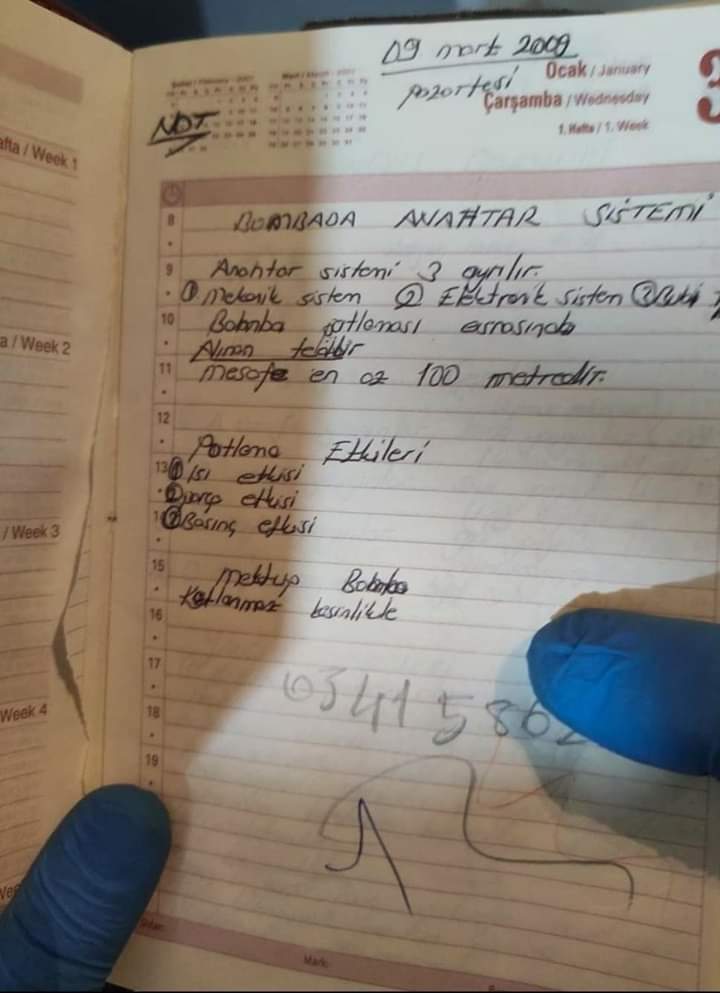 09 mart 2009
Ocak / January
pazartesi
Çarşamba / Wednesday
1. Hafta / 1. Week
NOT
afta / Week 1
a / Week 2
/ Week 3
Week 4
8 BOMBADA ANAHTAR SİSTEMİ
9 Anahtar sistemi 3 ayrılır.
① Mekanik sistem ② Elektronik sistem ③
10 Bobmba patlaması esnasında
Alınan tedbir
11 mesafe en az 100 metredir.
12
Patlama Etkileri
13 ① Isı etkisi
② etkisi
14 ③ Basınç etkisi
15
Mektup Bobmba
16 Katlanmaz kesinlikle
17
0541 5862
18
19